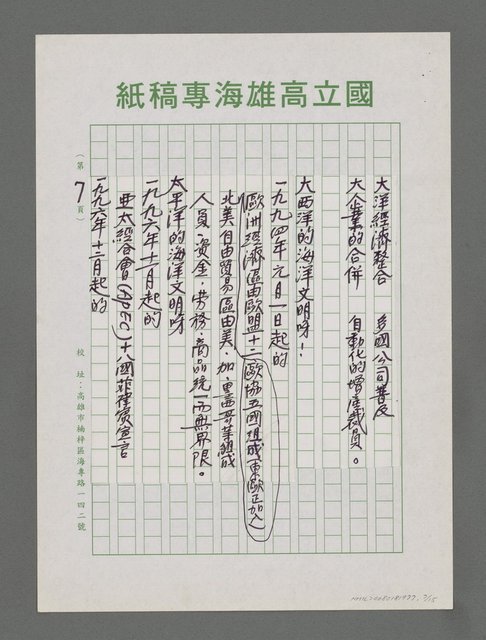 國立高雄海專稿紙
大洋經濟整合　多國公司普及
大企業的合併　自動化的增產裁員。
大西洋的海洋文明呀！
一九九四年元月一日起的
歐洲經濟區由歐盟十二歐協五國組成(東歐正加入)
北美自由貿易區由美．加．墨哥等組成
人員．資金．勞務．商品統一而無界限。
太平洋的海洋文明呀
一九九六年十一月起的
亞太經合會(APEC)十八國菲律賓宣言
一九九六年十二月起的
（第7頁）
校址：高雄市楠梓區海專路一四二號